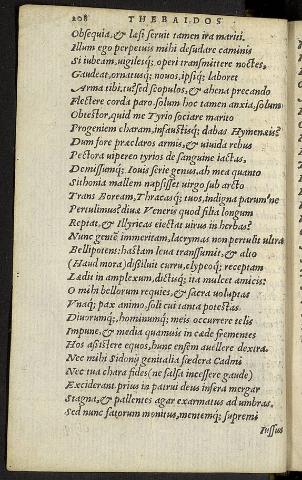 208 THEBAIDOS
Obsequia, & læsi seruit tamen ira mariti.
Illum ego perpetuis mihi desudare caminis
Si iubeam, vigilesq; operi transmittere noctes,
Gaudeat, ornatusq; nouos, ipsiq; laboret
Arma tibi. tu: sed scopulos, & ahena precando
Flectere corda paro. solum hoc tamen anxia, solum
Obtestor, quid me Tyrio sociare marito
Progeniem charam, infaustisq; dabas Hymenæis?
Dum fore præclaros armis, & viuida rebus
Pectora vipereo tyrios de sanguine iactas,
Demissumq; Iouis serie genus. ah mea quanto
Sithonia mallem nupsisset virgo sub arcto
Trans Boream, Thracasq; tuos, indigna parum'ne
Pertulimus? diuæ Veneris quod filia longum
Reptat, & Illyricas eiectat uirus in herbas?
Nunc gentē immeritam, lacrymas non pertulit ultra
Bellipotens: hastam leua transumit, & alto
(Haud mora) dissiluit curru, clypeoq; receptam
Lædit in amplexum, dictisq; ita mulcet amicis:
O mihi bellorum requies, & sacra voluptas
Vnaq; pax animo, soli cui tanta potestas.
Diuorumq;, hominumq; meis occurrere telis
Impune, & media quamuis in cæde frementes
Hos assistere equos, hunc ensem auellere dextra.
Nec mihi Sidonij genitalia fœdera Cadmi
Nec tua chara fides (ne falsa incessere gaude)
Exciderant. prius in patrui deus infera mergar
Stagna, & pallentes agar exarmatus ad umbras.
Sed nunc fatorum monitus, mentemq; supremi
Iussus